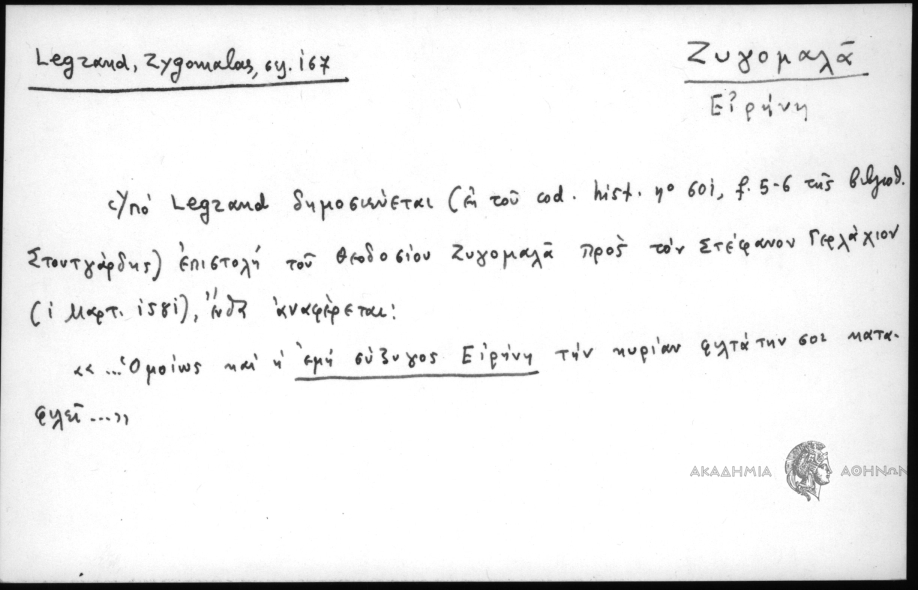 Legrand, Zygomalas, σ. 167
Ζυγομαλᾶ
Εἰρήνη
Ὑπό Legrand δημοσιεύεται (ἐκ τοῦ cod. hist. nº 601, f. 5-6 τῆς βιβλιοθ.
Στουτγάρδης) ἐπιστολή τοῦ Θεοδοσίου Ζυγομαλᾶ πρὸς τόν Στέφανον Γερλάχιον
(1 Μαρτ. 1581), ἔνθα ἀναφέρεται:
«...Ὁμοίως καί ἡ ἐμή σύζυγος Εἰρήνη τήν κυρίαν φιλτάτην σοι κατα-
φιλεῖ...»
ΑΚΑΔΗΜΙΑ ΑΘΗΝΩΝ